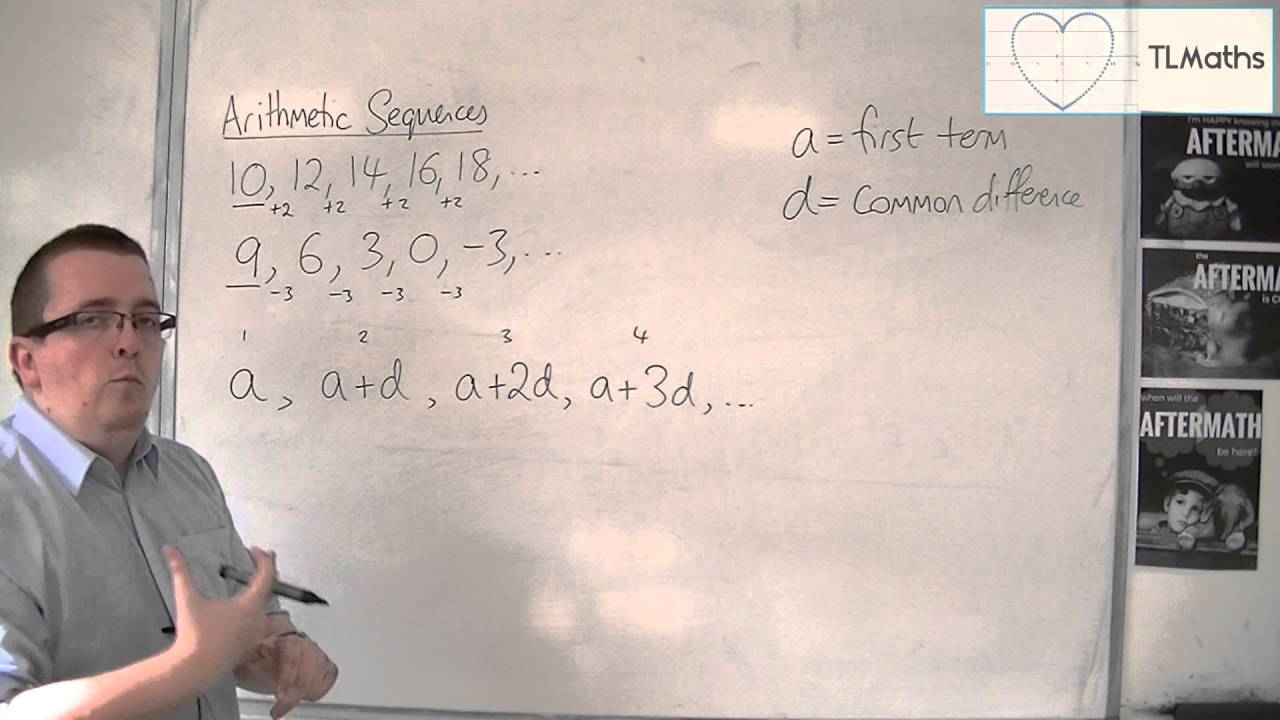 TLMaths
Arithmetic Sequences
10, 12, 14, 16, 18, ...
+2 +2 +2 +2
9, 6, 3, 0, -3, ...
-3 -3 -3 -3
1 2 3 4
a, a+d, a+2d, a+3d, ...
a = first term
d = common difference
I'm HAPPY knowing
AFTERMA
will
the
AFTERMA
is
when will the
AFTERMATH
be here?